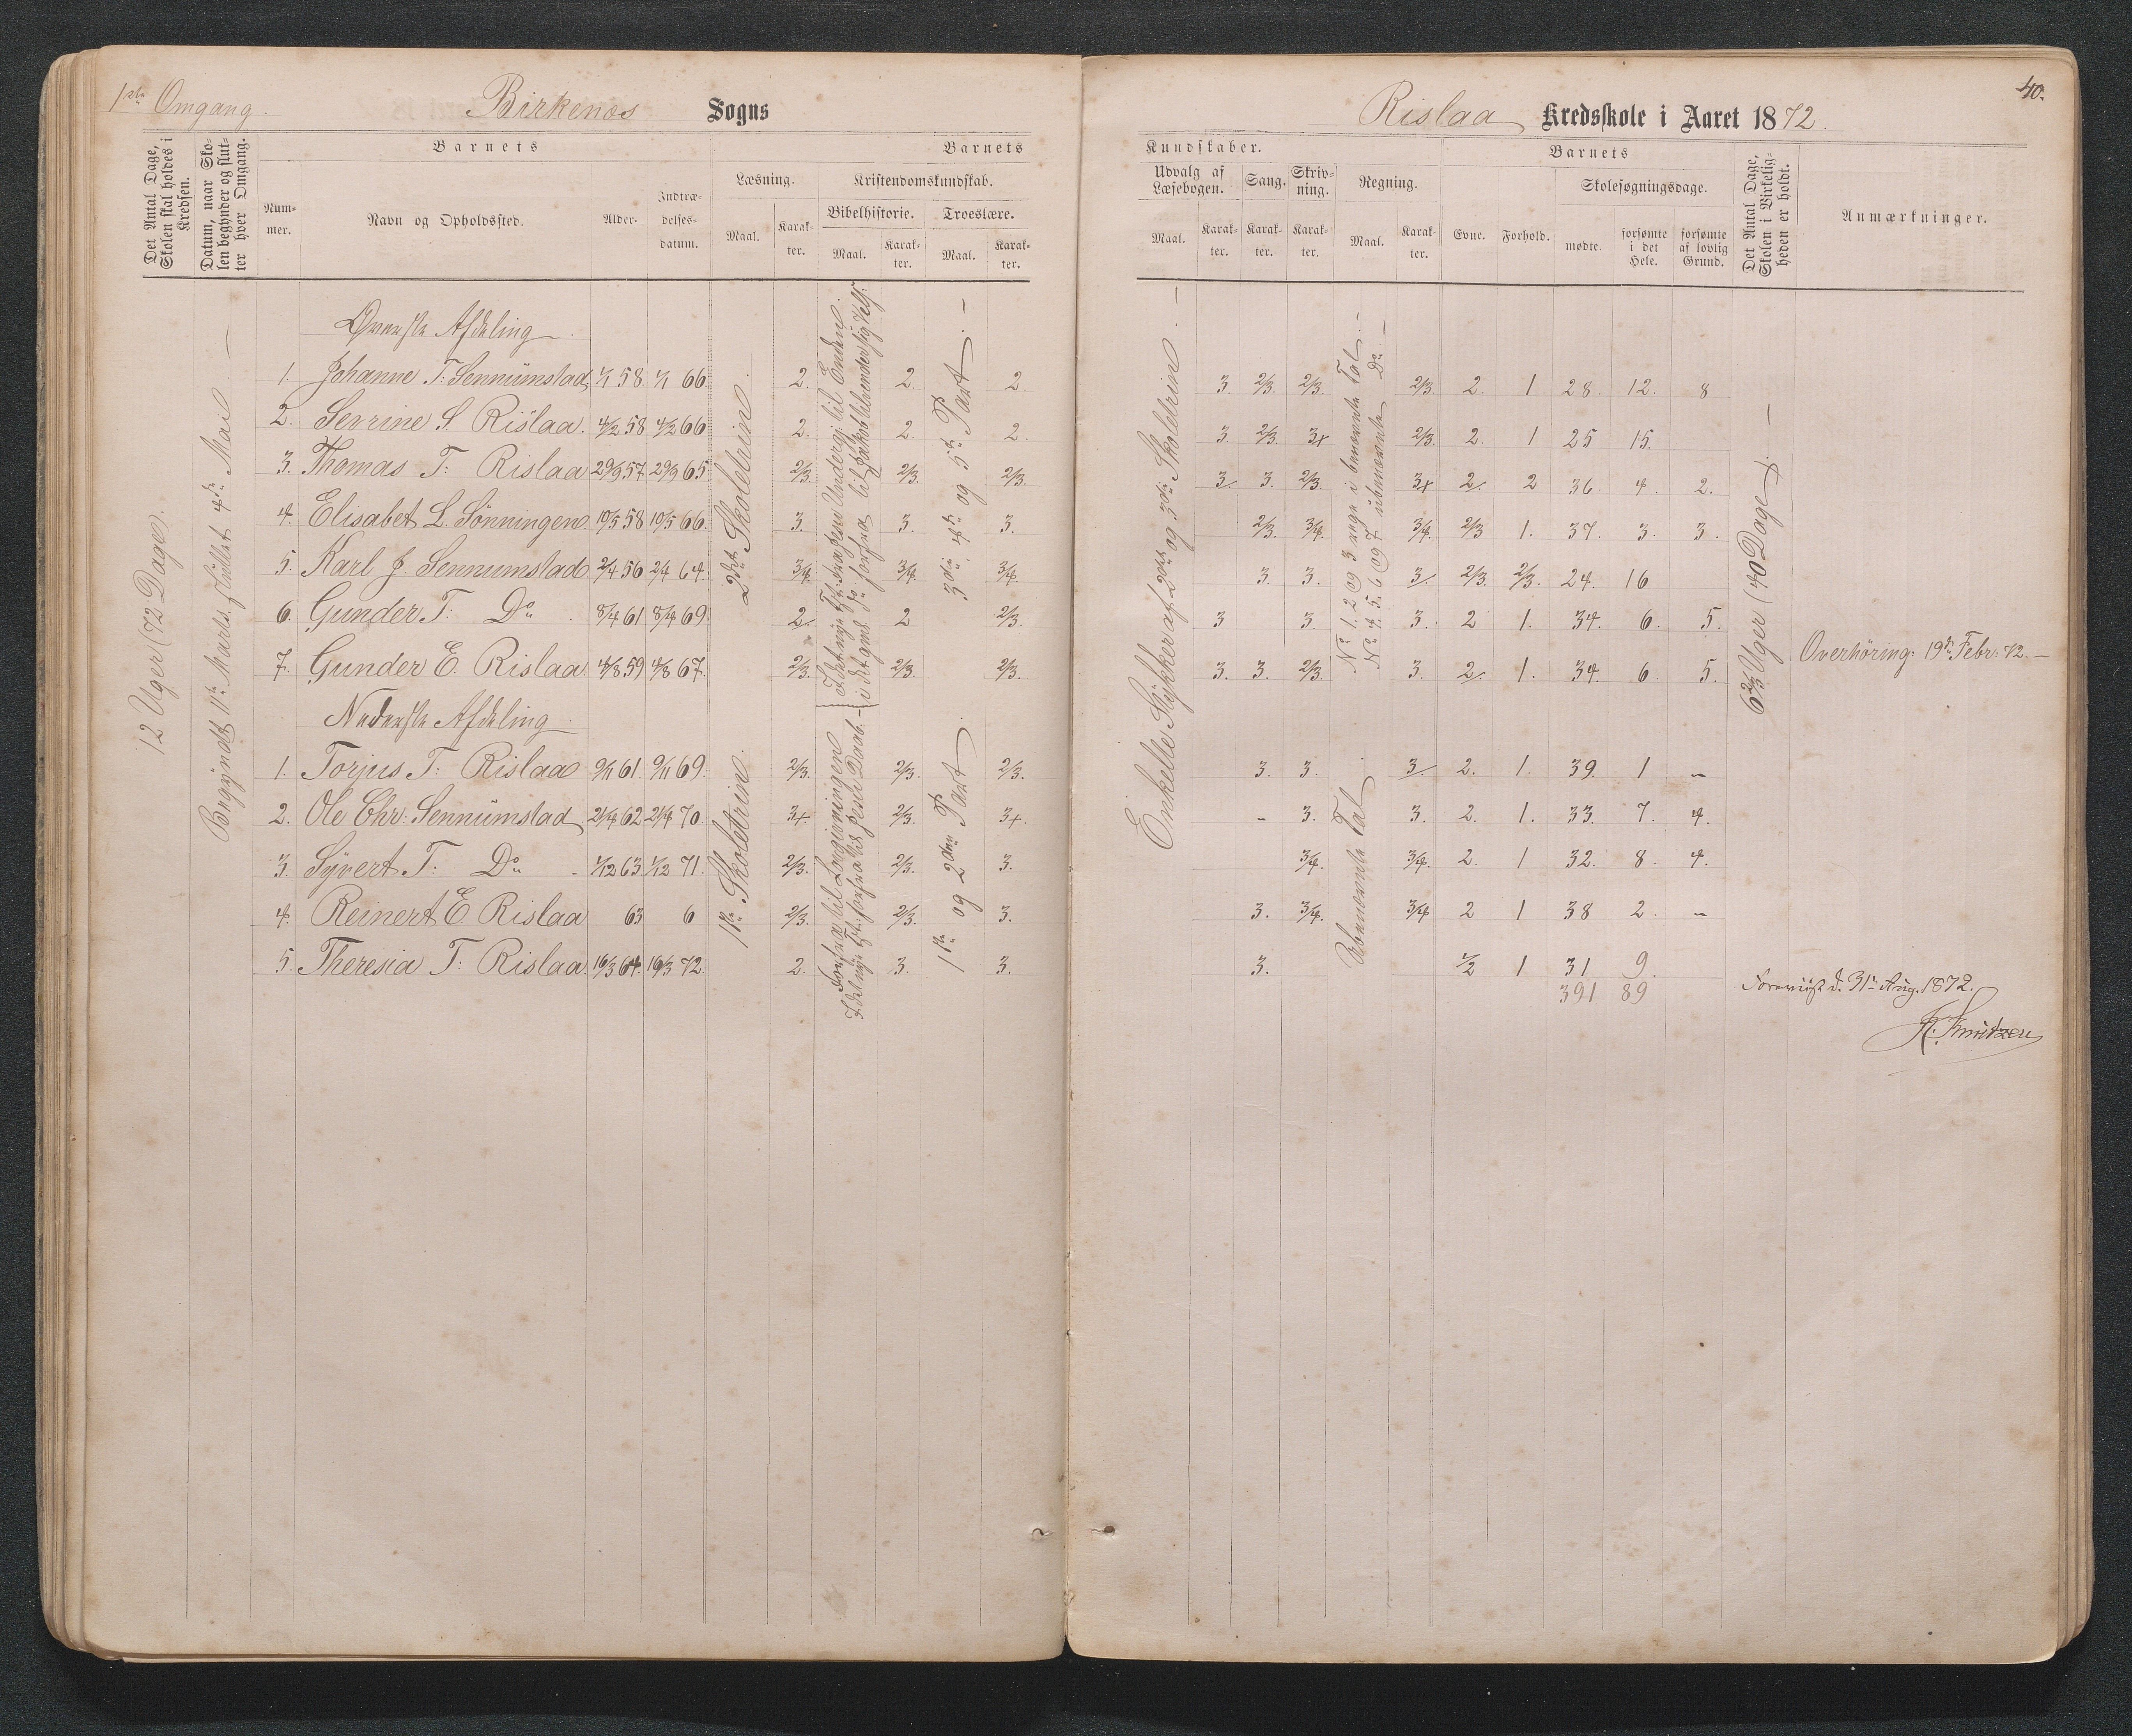 1ste Omgang.
Birkenes Sogns
Det Antal Dage, Skolen skal holdes i Kredsen.
Datum, naar Skolen begynder og slutter hver Omgang.
Barnets
Barnets
Nummer.
Navn og Opholdssted.
Alder.
Indtrædelsesdatum.
Læsning.
Kristendomskundskab.
Maal.
Karakter.
Bibelhistorie.
Troeslære.
Maal.
Karakter.
Maal.
Karakter.
12 Uger (72 Dage).
Begyndt 11te Marts. sluttet 4de Mai. —
Øverste Afdeling
1. Johanne T: Sennumstad 1/1 58. 1/1 66. 2. 2. 2.
2. Serrine S Rislaa. 4/2 58 4/2 66 2. 2. 2.
3. Thomas T: Rislaa 29/9 57. 29/9 65. 2/3. 2/3. 2/3.
4. Elisabet L. Sönningen. 10/5 58 10/5 66. 3. 3. 3.
5. Karl J. Sennumstad. 2/4 56 2/4 64. 3/4. 3/4. 3/4.
6. Gunder T: Do 8/4 61 8/4 69. 2. 2 2/3.
7. Gunder E. Rislaa. 4/8 59 4/8 67. 2/3. 2/3. 2/3.
2det Skoletrin.
3die, 4de og 5te Part. —
Nederste Afdeling
1. Torjus T: Rislaa 9/11 61. 9/11 69. 2/3. 2/3. 2/3.
2. Ole Chr: Sennumstad 21/4 62 21/4 70. 3+. 2/3. 3+.
3. Syvert T: Do 1/12 63 1/12 71. 2/3. 2/3. 3.
4. Reinert E Rislaa 63 6 2/3. 2/3. 3.
5. Theresia T: Rislaa 16/3 64. 16/3 72. 2. 3. 3.
1ste Skoletrin.
1ste og 2den Part.
40.
Rislaa Kredsskole i Aaret 1872.
Kundskaber.
Barnets
Udvalg af Læsebogen.
Sang.
Skrivning.
Regning.
Skolesøgningsdage.
Det Antal Dage, Skolen i Virkeligheden er holdt.
Anmærkninger.
Maal.
Karakter.
Karakter.
Karakter.
Maal.
Karakter.
Evne.
Forhold.
mødte.
forsømte i det Hele.
forsømte af lovlig Grund.
Enkelte Stykker af 2det og 3die Skoletrin. —
No 1. 2 og 3 rege i benævnte Tal. —
No 4. 5. 6 og 7 ubenævnte Do. —
3. 2/3. 2/3. 2/3. 2. 1 28. 12. 8
3. 2/3. 3+ 2/3. 2. 1 25 15.
3. 3. 2/3. 3+ 2. 2 36. 4. 2.
2/3. 3/4. 3/4. 2/3 1. 37. 3. 3.
3. 3. 3. 2/3. 2/3. 24. 16
3 3. 3. 2 1. 34. 6. 5.
3. 3. 2/3. 3. 2. 1. 34. 6 5.
6 2/3 Uger (40 Dage). —
Overhöring: 19de Febr: 72. —
Ubenævnte Tal
3. 3. 3. 2. 1. 39. 1 „
„ 3. 3. 2. 1. 33. 7. 4.
3/4. 3/4. 2. 1 32. 8. 4.
3. 3/4. 3/4 2 1 38 2. „
3. 1/2 1 31 9.
391 89
Foreviist d. 31te Aug. 1872.
K. Knutzen